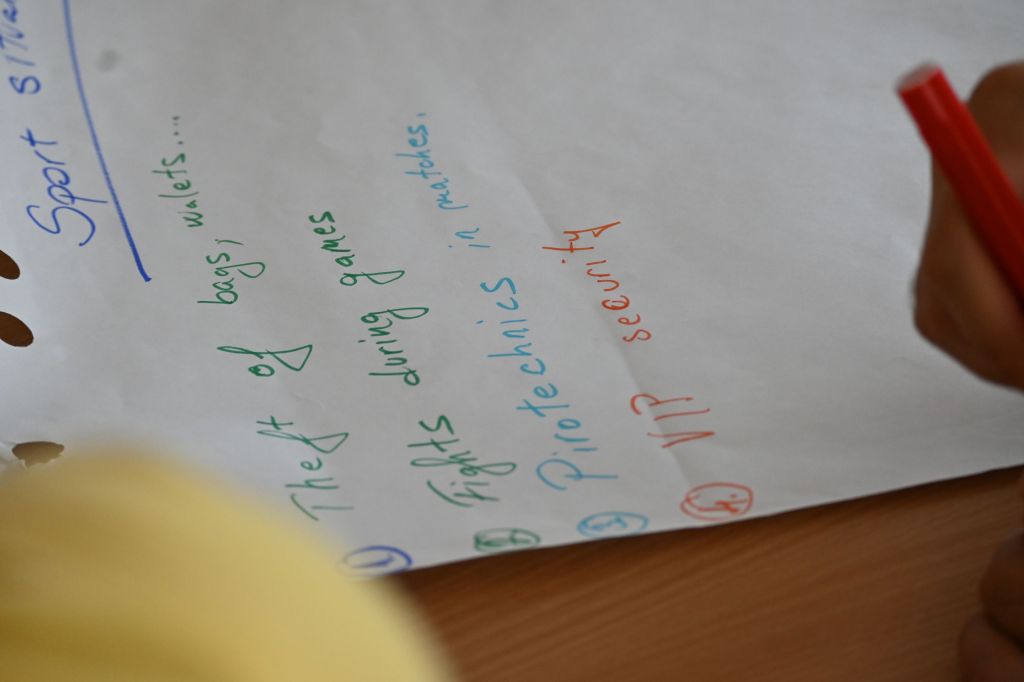 Sport
① Theft of bags, walets....
② Fights during games
③ Pirotechnics in matches.
④ VIP security